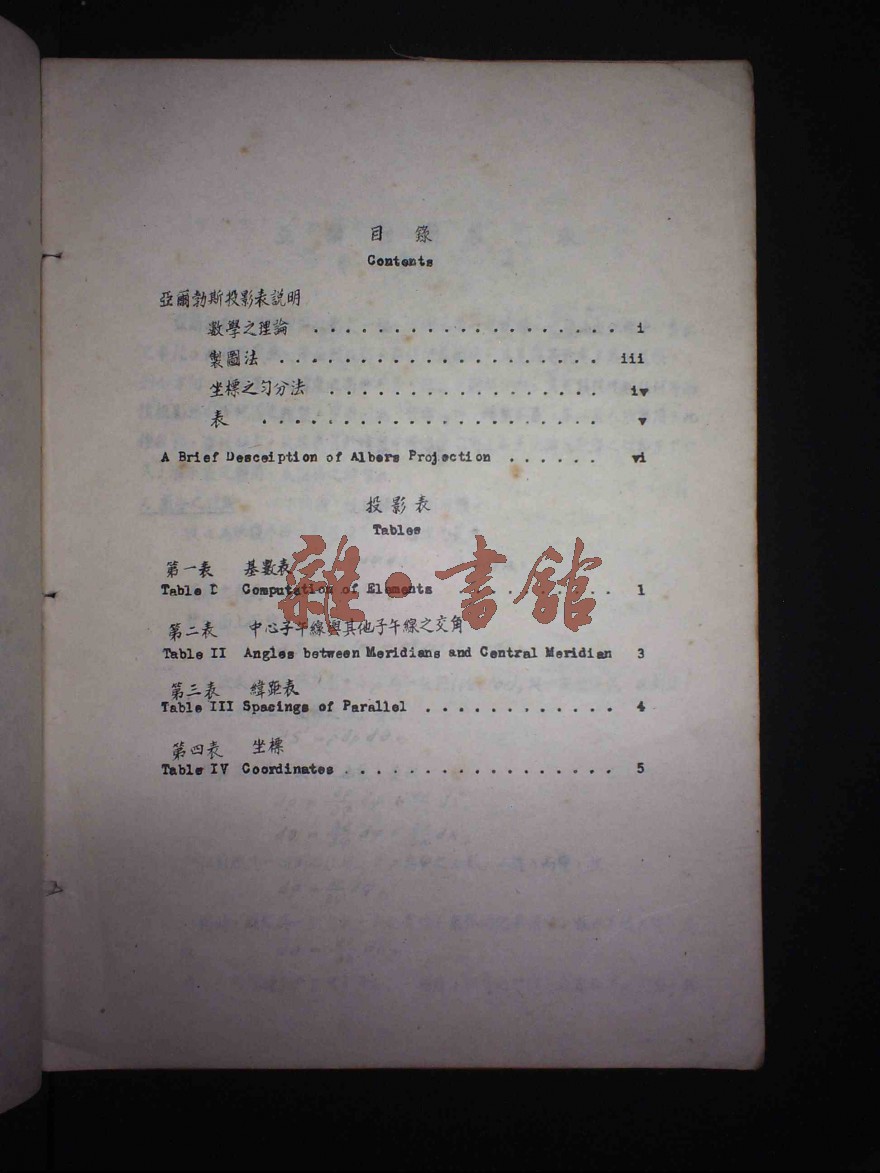 目錄
Contents
亞爾勃斯投影表説明
數學之理論 . . . . . . . . . . . . . . . . . . . i
製圖法 . . . . . . . . . . . . . . . . . . . . iii
坐標之匀分法 . . . . . . . . . . . . . . . . . iv
表 . . . . . . . . . . . . . . . . . . . . . v
A Brief Desceiption of Albers Projection . . . . . . vi
投影表
Tables
第一表 基數表
Table I Computation of Elements . . . . . . . . . . 1
第二表 中心子午線與其他子午線之交角
Table II Angles between Meridians and Central Meridian 3
第三表 緯距表
Table III Spacings of Parallel . . . . . . . . . . . . 4
第四表 坐標
Table IV Coordinates . . . . . . . . . . . . . . . . . 5
雜·書館